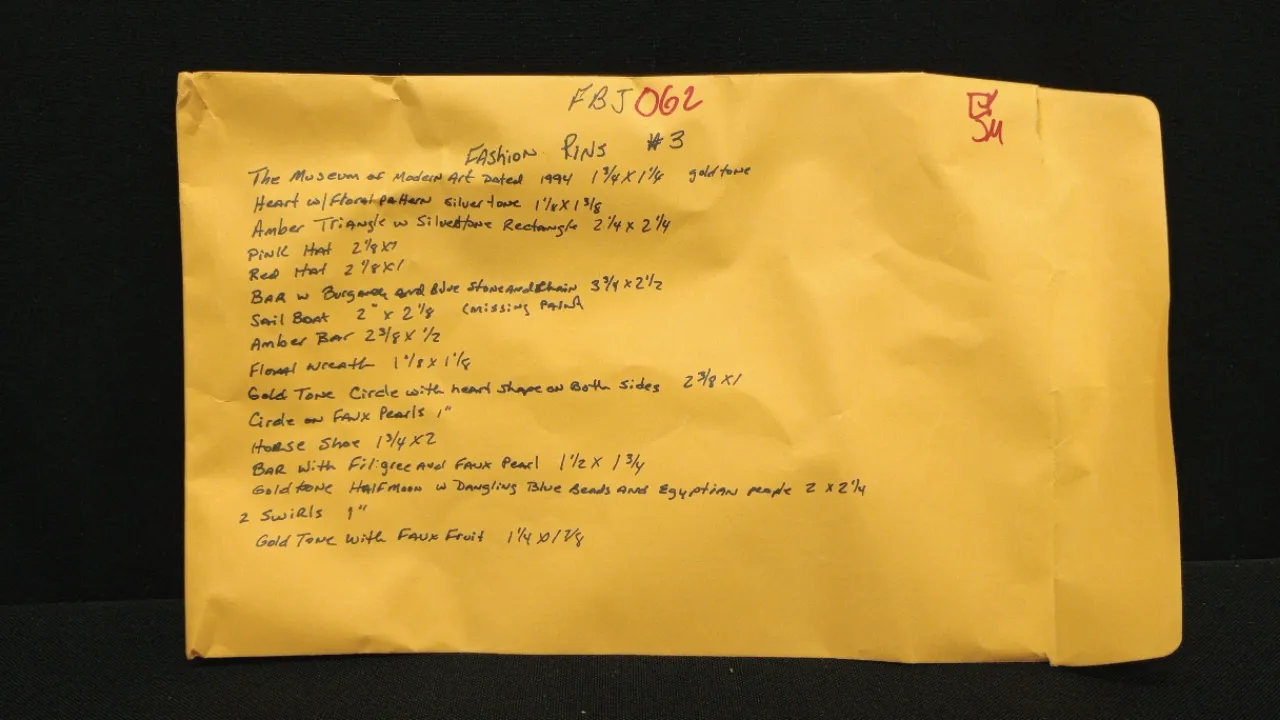 FBJ 062
Fashion Pins #3
The Museum of Modern Art Dated 1994 1 3/4 x 1 1/4 goldtone
Heart w/ Floral pattern silvertone 1 1/8 x 1 3/8
Amber Triangle w Silvertone Rectangle 2 1/4 x 2 1/4
Pink Hat 2 1/8 x 1
Red Hat 2 1/8 x 1
BAR w Burgandy and Blue Stone and Chain 3 3/4 x 2 1/2
Sail Boat 2" x 2 1/8 (missing paint)
Amber Bar 2 3/8 x 1/2
Floral wreath 1 1/8 x 1 1/8
Gold Tone Circle with heart shape on Both sides 2 3/8 x 1
Circle on FAUX Pearls 1"
Horse Shoe 1 3/4 x 2
BAR with Filigree and FAUX Pearl 1 1/2 x 1 3/4
Goldtone HalfMoon w Dangling Blue Beads And Egyptian people 2 x 2 1/4
2 SwiRls 1"
Gold Tone with FAUX Fruit 1 1/4 x 1 7/8